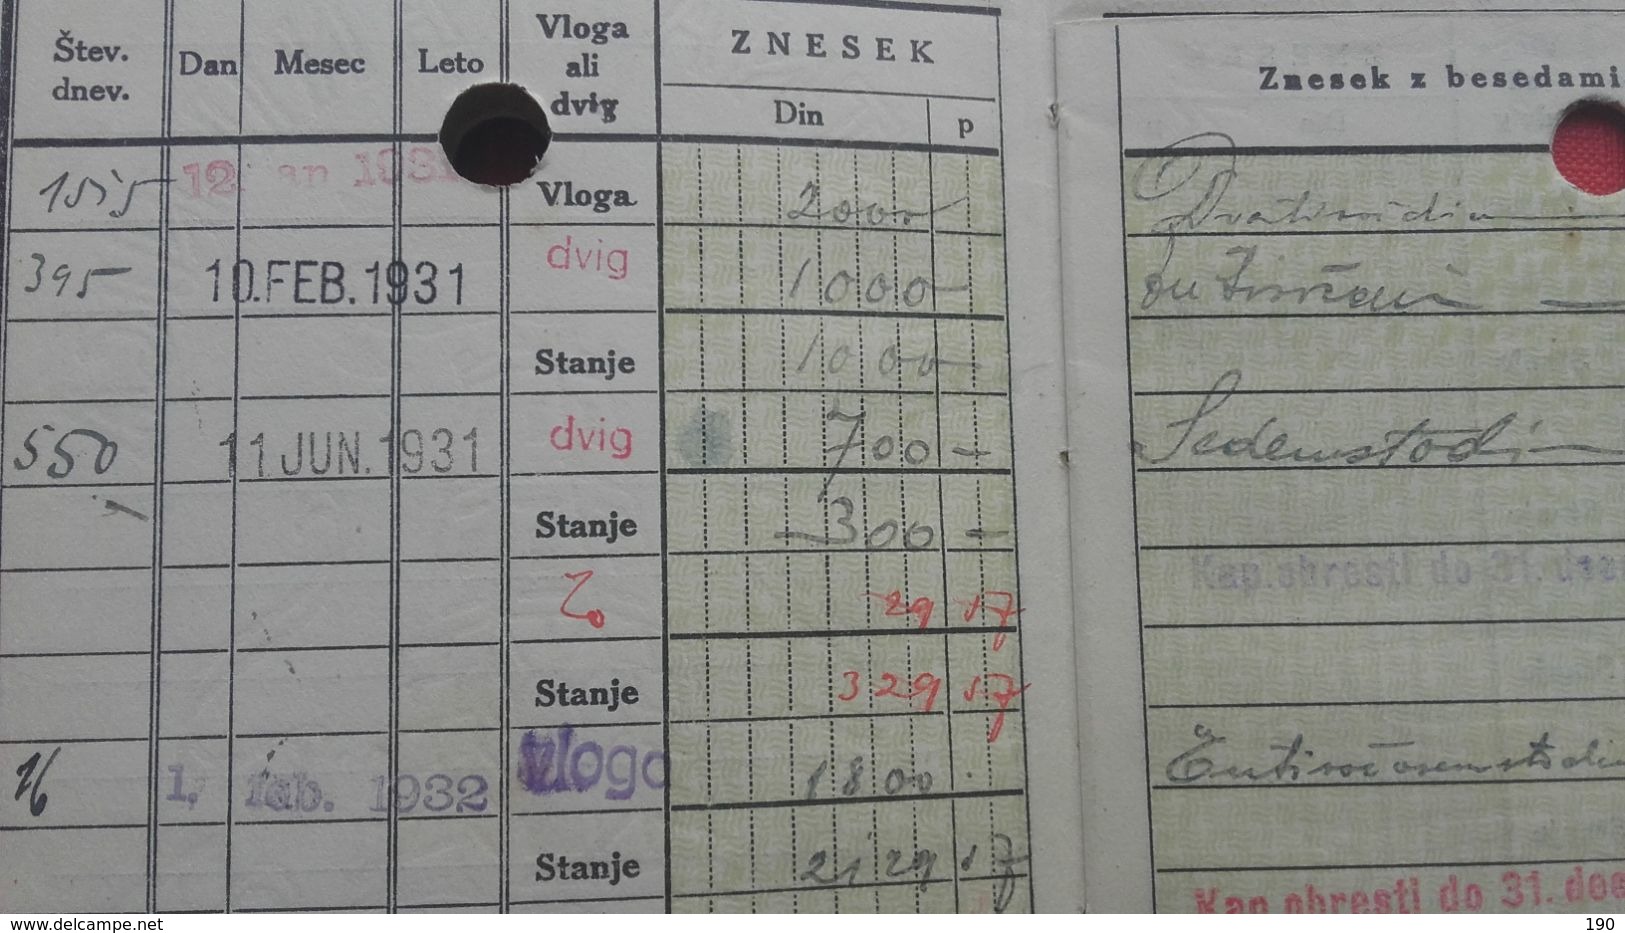 Štev. dnev. Dan Mesec Leto Vloga ali dvig ZNESEK Din p Znesek z besedami
1515 12. 1931 Vloga 2000
395 10.FEB.1931 dvig 1000 —
Stanje 1000 —
550 11 JUN. 1931 dvig 700 — Sedemstodin
Stanje — 300 —
Kap.obresti do 31. dec
29 17
Stanje 329 17
16 1. feb. 1932 Vloga 1800
Stanje 2129 17
Kap obresti do 31. dec
www.delcampe.net
190